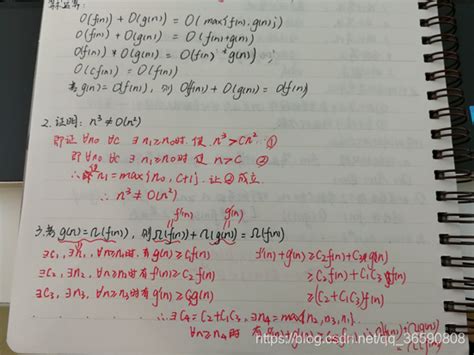 O(f(n)) + O(g(n)) = O(max{f(n), g(n)})
O(f(n)) + O(g(n)) = O(f(n)+g(n))
O(f(n)) * O(g(n)) = O(f(n) * g(n));
O(Cf(n)) = O(f(n))
若g(n)=O(f(n)), 则 O(f(n)) + O(g(n)) = O(f(n))
2. 证明: n³ ≠ O(n²)
即证 ∀n₀ ∀c ∃ n₁≥n₀时 使 n³ > Cn² ①
即 ∀n₀ ∀c ∃ n₁≥n₀时 使 n > C ②
∴ n₁=max{n₀, C+1} 让②成立
∴ n³ ≠ O(n²)
f'(n) g'(n)
3.若 g(n)=Ω(f(n)), 则Ω(f(n))+Ω(g(n))=Ω(f(n))
∃C₁, ∃n₁, ∀n≥n₁时 有 g(n)≥C₁f(n) f'(n)+g'(n)≥C₂f(n)+C₃g(n)
∃C₂, ∃n₂, ∀n≥n₂时 有 f'(n)≥C₂f(n) ≥C₂f(n)+C₁C₃f(n)
∃C₃, ∃n₃, ∀n≥n₃时 有 g'(n)≥C₃g(n) ≥(C₂+C₁C₃)f(n)
∴ ∃C₄=C₂+C₁C₃, ∃n₄=max{n₂,n₃,n₁}
∀n≥n₄时 有
https://blog.csdn.net/qq_36590808